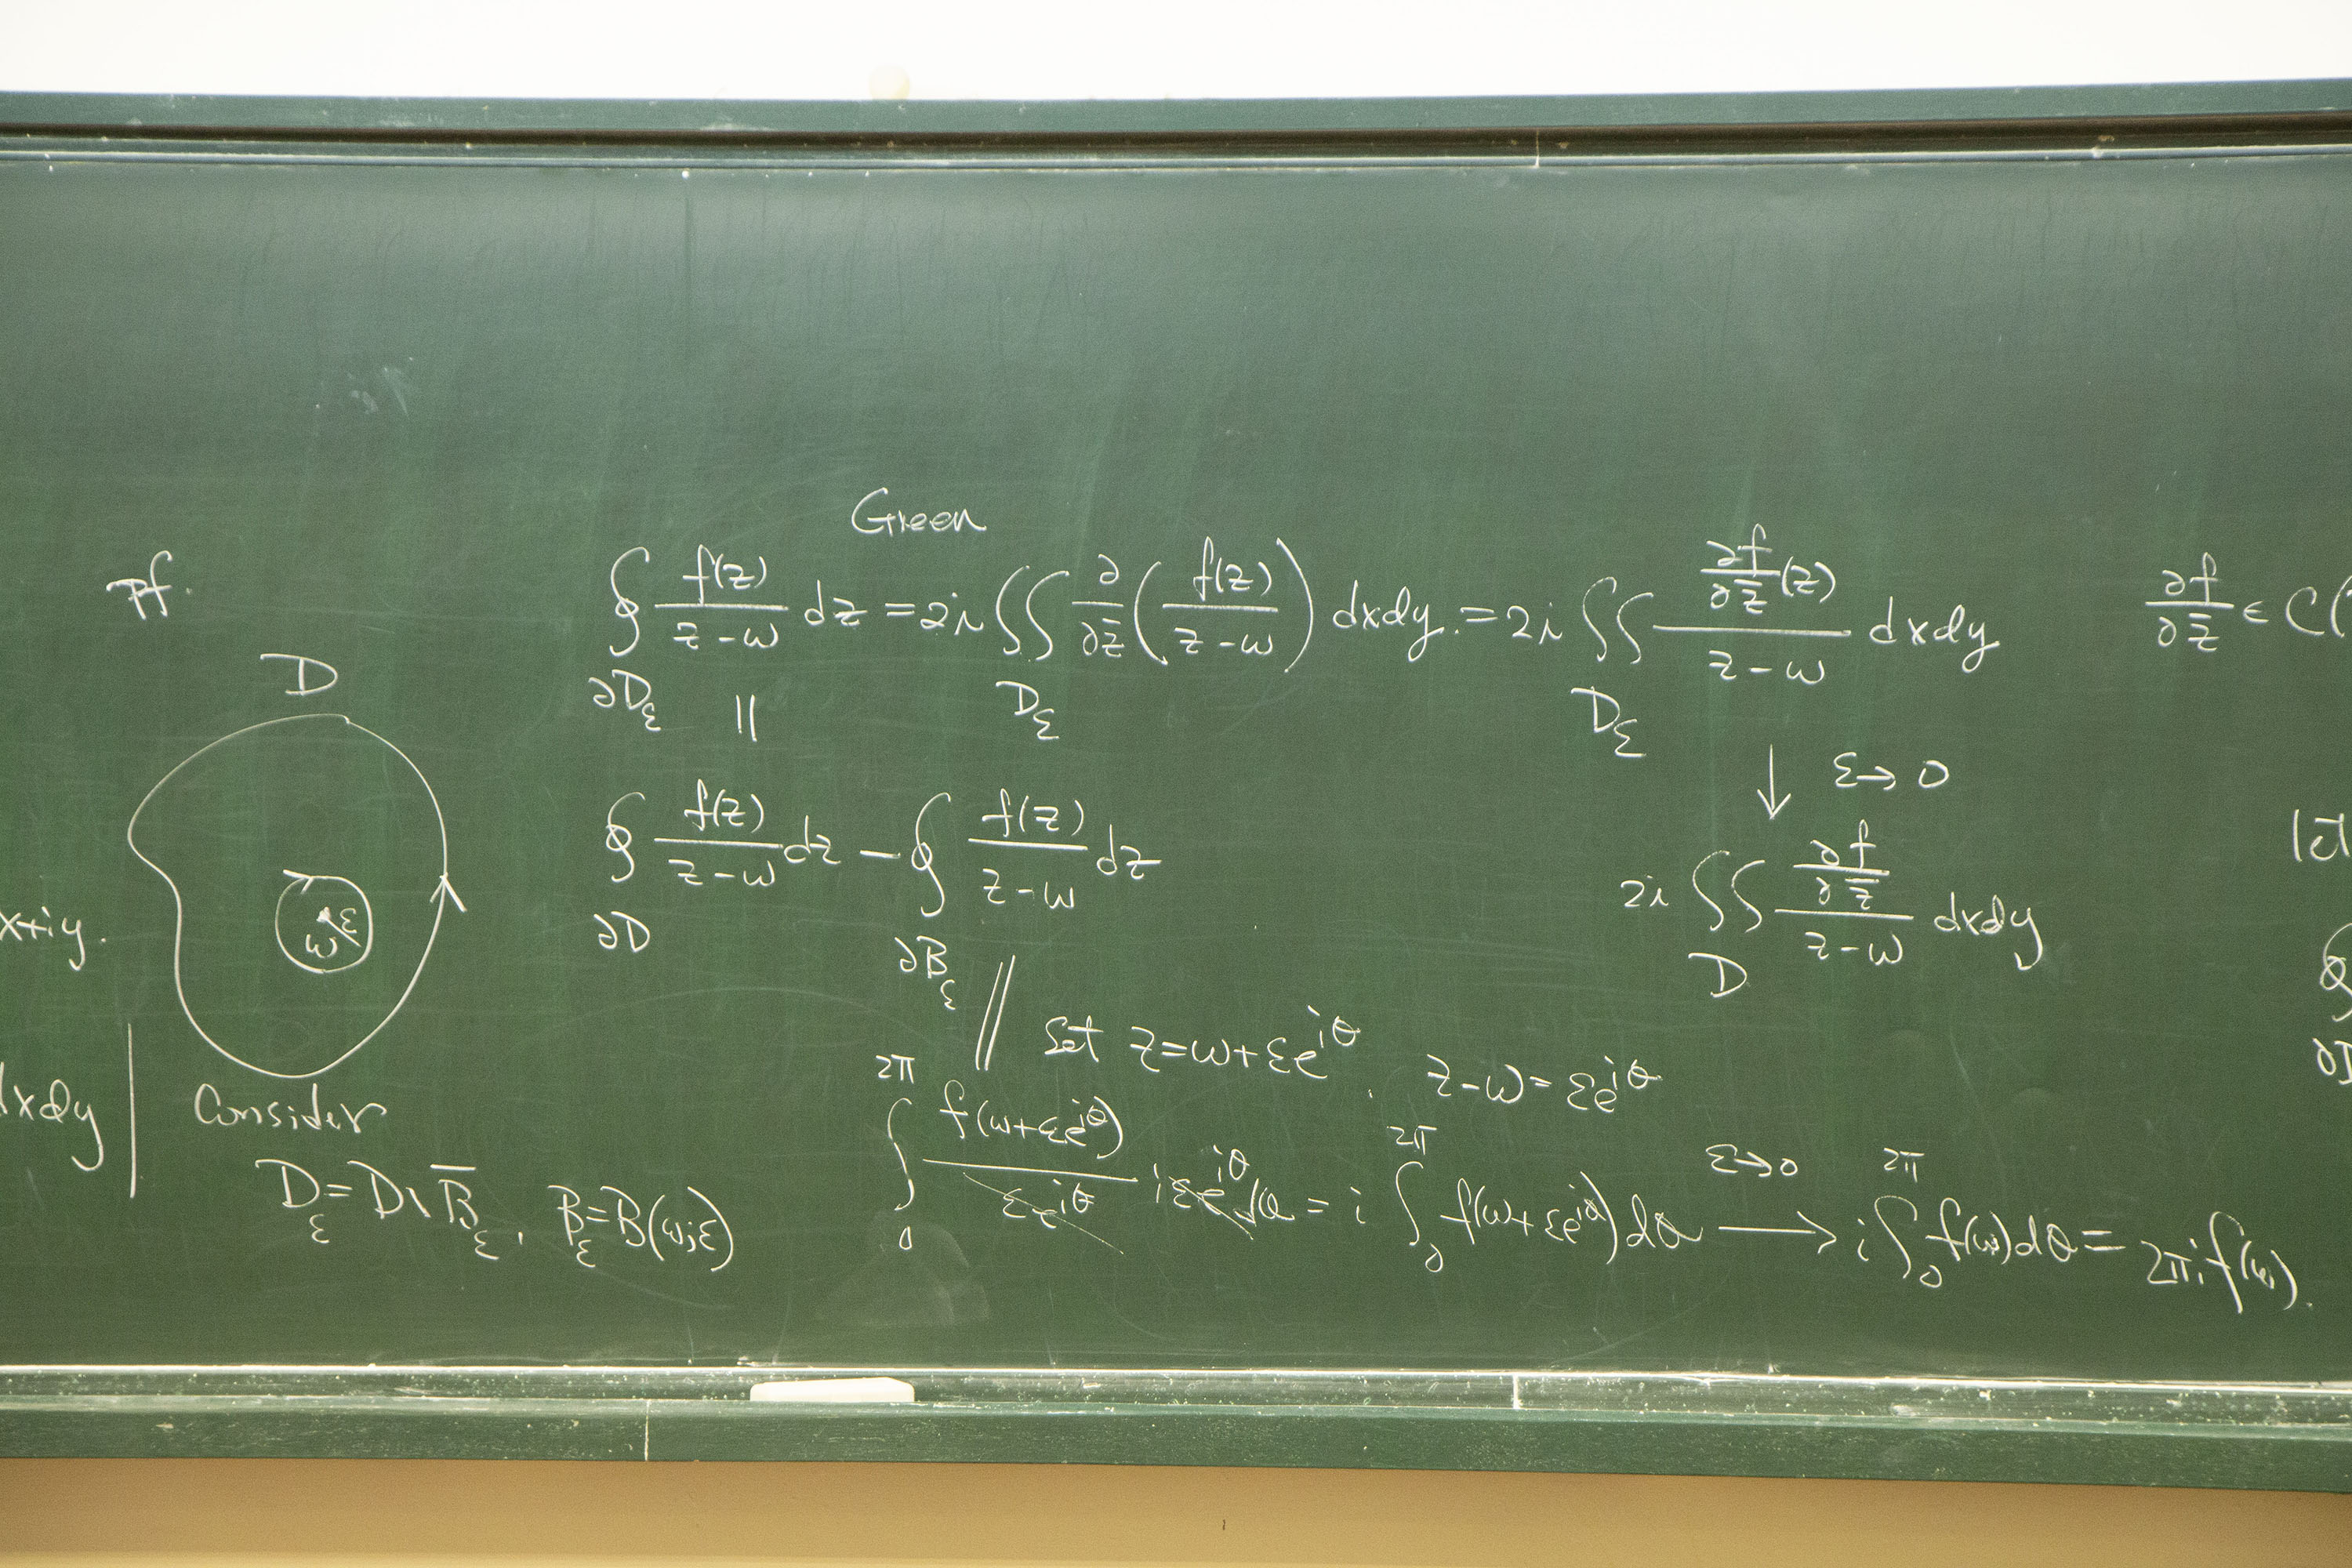 Pf.
D
ω ε
x+iy.
dxdy
Consider
D_ε = D \ \overline{B}_ε, B_ε = B(ω;ε)
Green
∮_{∂D_ε} f(z)/(z-ω) dz = 2i ∬_{D_ε} ∂/∂z̄ (f(z)/(z-ω)) dxdy. = 2i ∬_{D_ε} (∂f/∂z̄ (z))/(z-ω) dxdy
||
↓ ε→0
∮_{∂D} f(z)/(z-ω) dz - ∮_{∂B_ε} f(z)/(z-ω) dz
2i ∬_D (∂f/∂z̄)/(z-ω) dxdy
|| Set z=ω+εe^{iθ}. z-ω=εe^{iθ}
∫_0^{2π} f(ω+εe^{iθ})/(εe^{iθ}) iεe^{iθ}dθ = i ∫_0^{2π} f(ω+εe^{iθ})dθ ⟶^{ε→0} i∫_0^{2π} f(ω)dθ = 2πi f(ω).
∂f/∂z̄ ∈ C(